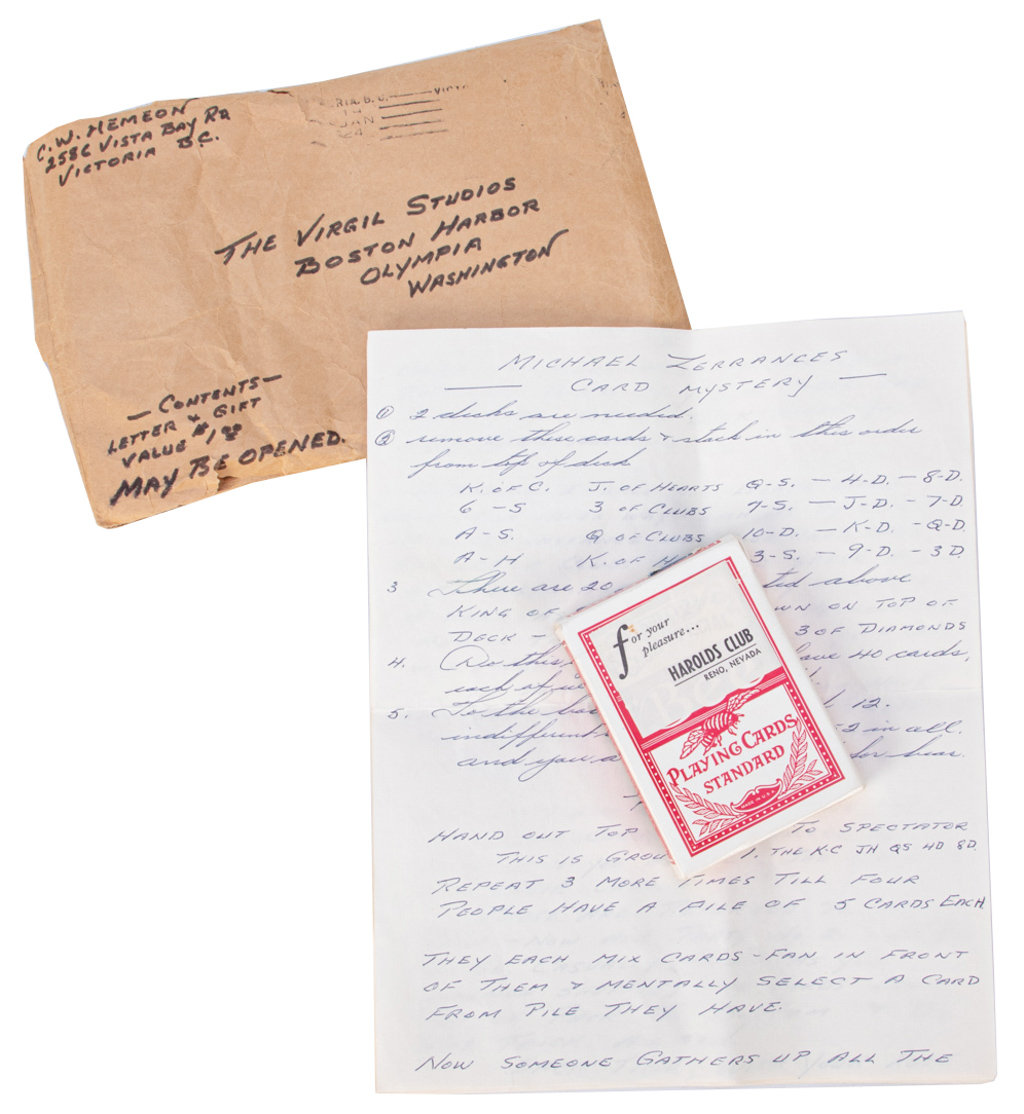 C.W. HEMEON
2586 VISTA BAY RD
VICTORIA B.C.
RIA, B.C. VICT
JAN
THE VIRGIL STUDIOS
BOSTON HARBOR
OLYMPIA
WASHINGTON
— CONTENTS —
LETTER & GIFT
VALUE $1.00
MAY BE OPENED.
MICHAEL ZERRANCES
— CARD MYSTERY —
① 2 decks are needed.
② remove these cards & stack in this order
from top of deck
K. OF C. J. OF HEARTS Q-S. — 4-D. — 8-D.
6-S 3 OF CLUBS 7-S. — J-D. — 7-D.
A-S. Q. OF CLUBS 10-D. — K-D. — Q-D
A-H K. OF 3-S. — 9-D. — 3D.
3 There are 20 above
KING OF ON TOP OF
DECK — 3 OF DIAMONDS
4. Do this have 40 cards,
each of
5. To the 12.
indifferent 52 in all.
and you
HAND OUT TOP TO SPECTATOR
THIS IS 1. THE K-C JH QS 4D 8D.
REPEAT 3 MORE TIMES TILL FOUR
PEOPLE HAVE A PILE OF 5 CARDS EACH
THEY EACH MIX CARDS - FAN IN FRONT
OF THEM & MENTALLY SELECT A CARD
FROM PILE THEY HAVE.
NOW SOMEONE GATHERS UP ALL THE
for your
pleasure...
HAROLDS CLUB
RENO, NEVADA
PLAYING CARDS
STANDARD
MADE IN U.S.A.